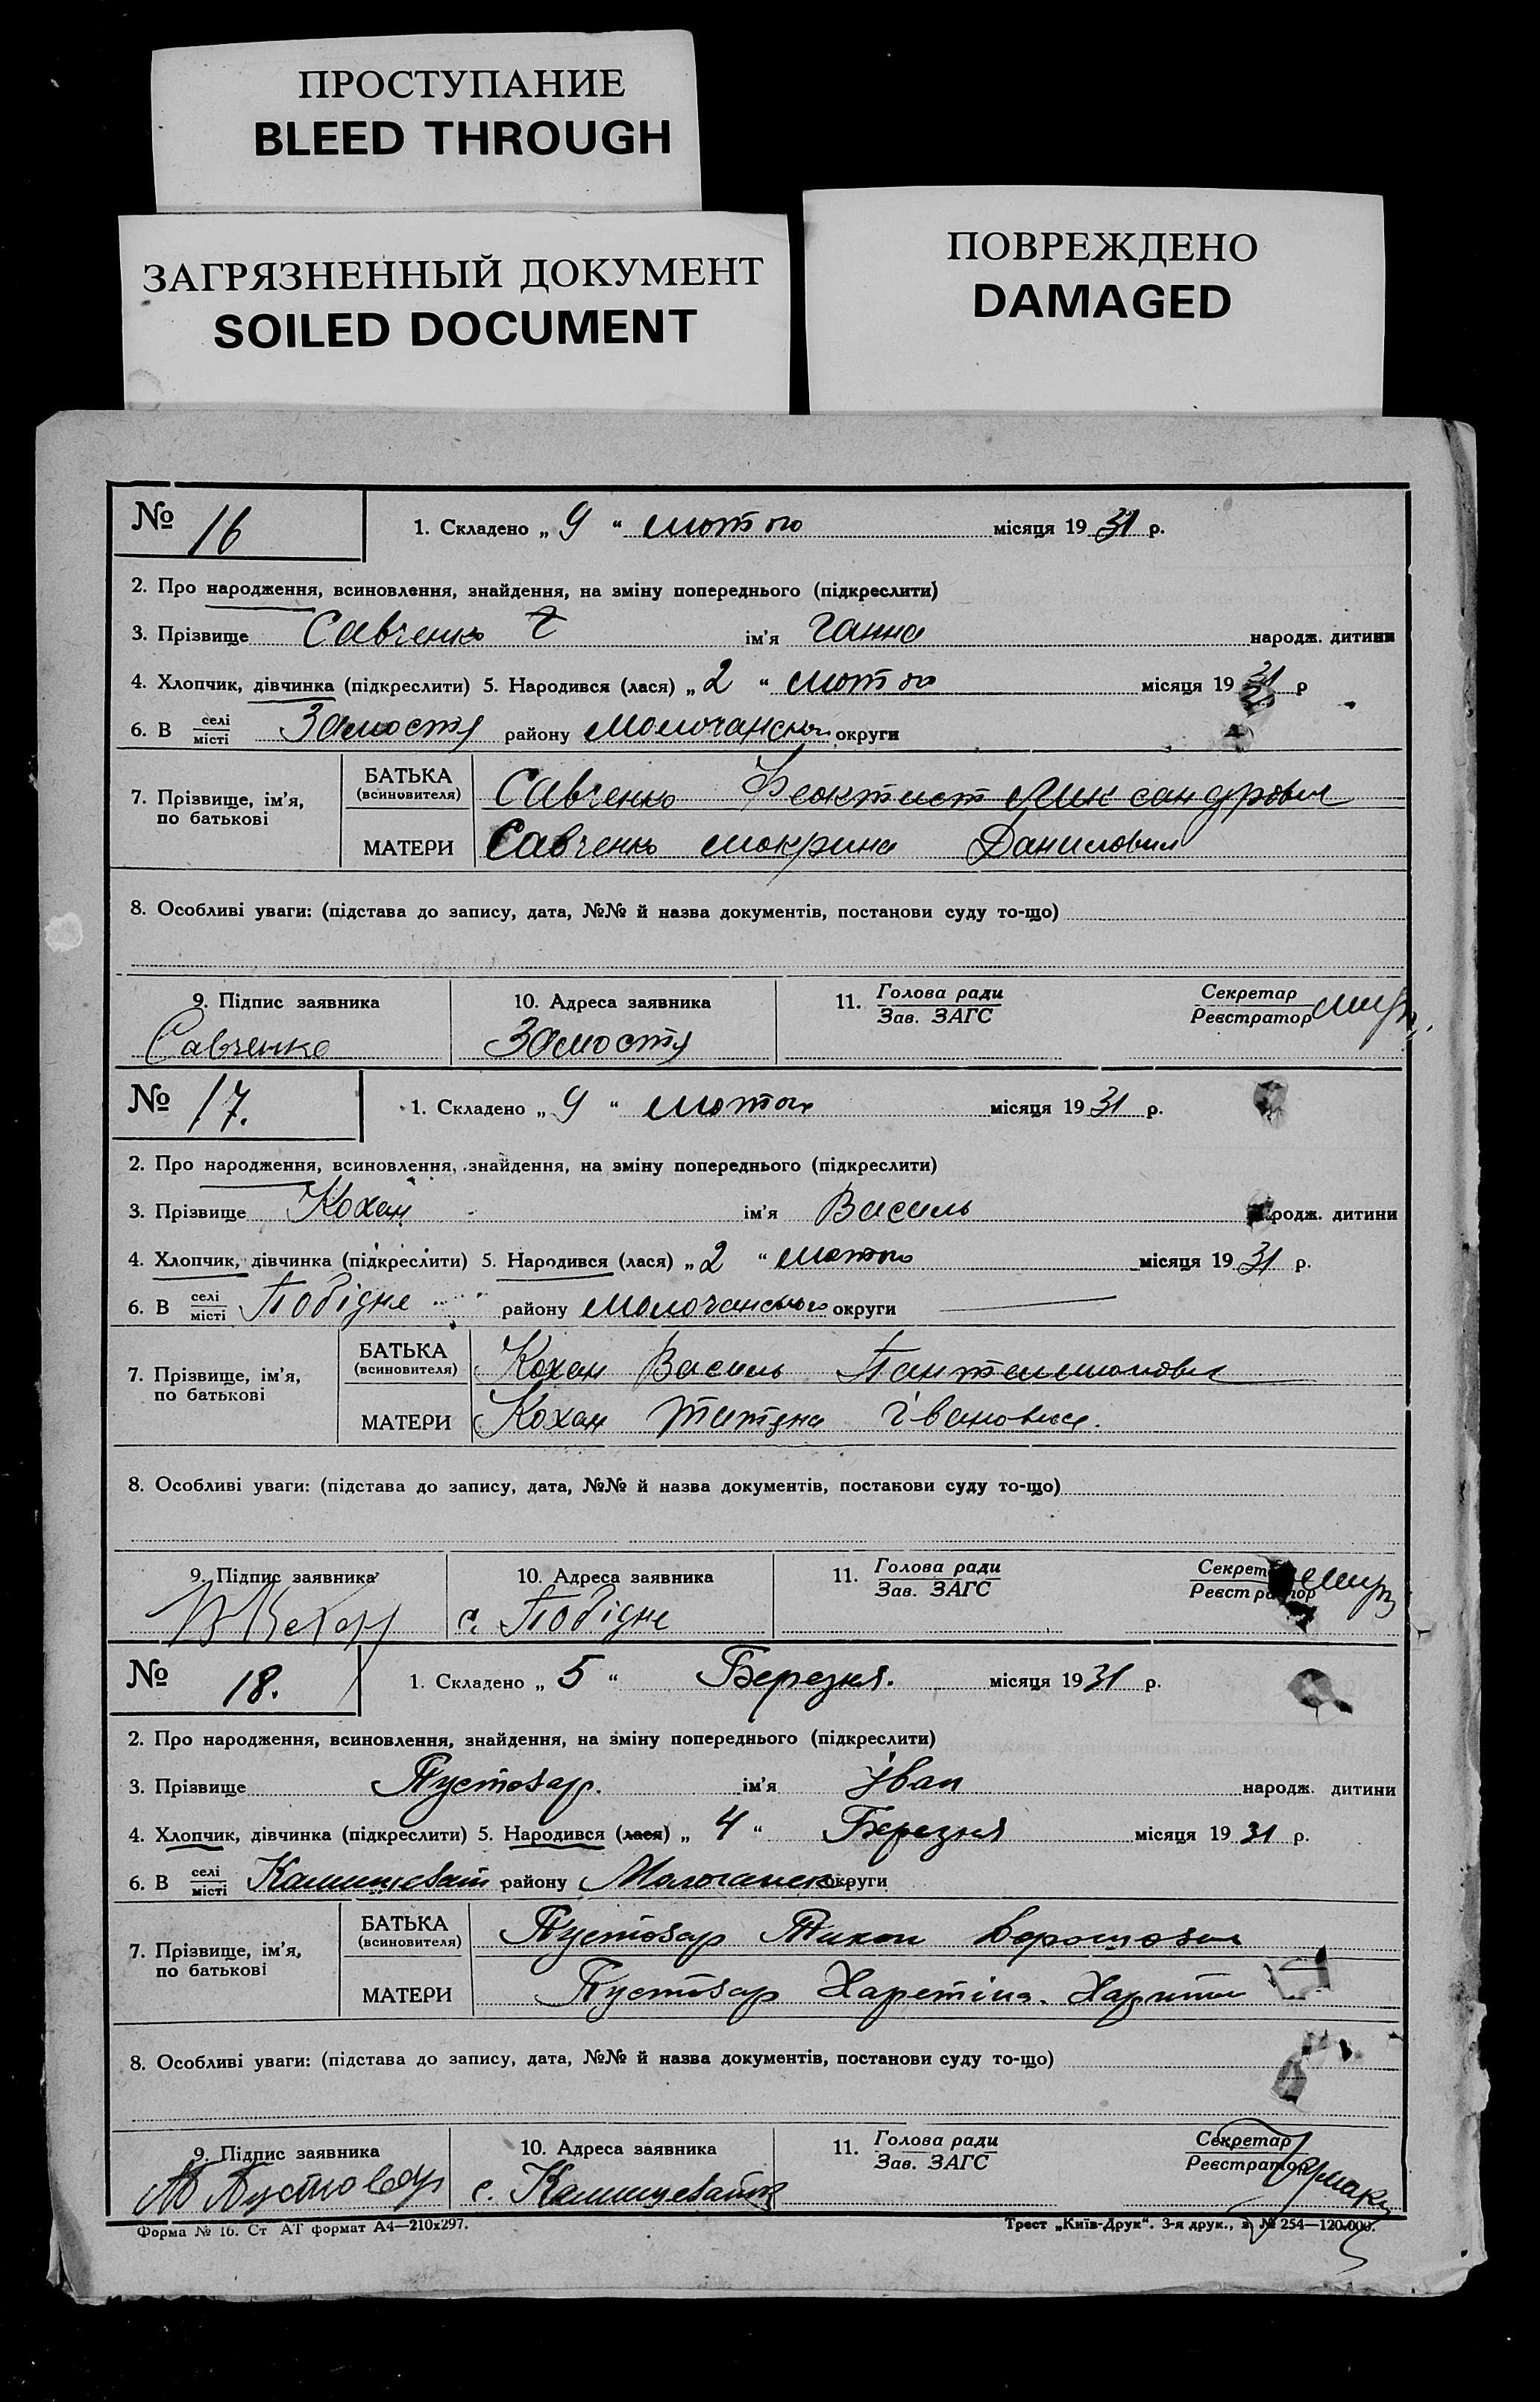 ПРОСТУПАНИЕ
BLEED THROUGH
ЗАГРЯЗНЕННЫЙ ДОКУМЕНТ
SOILED DOCUMENT
ПОВРЕЖДЕНО
DAMAGED
№ 16 1. Складено „ 9 “ лютого місяця 19 31 р.
2. Про народження, всиновлення, знайдення, на зміну попереднього (підкреслити)
3. Прізвище Савченко ім’я Ганна народж. дитини
4. Хлопчик, дівчинка (підкреслити) 5. Народився (лася) „ 2 “ лютого місяця 19 31 р
6. В селі/місті Замостя району Молочанськ округи
7. Прізвище, ім’я, по батькові БАТЬКА (всиновителя) Савченко Феоктист Лик сандрович
МАТЕРИ Савченко Мокрина Даниловна
8. Особливі уваги: (підстава до запису, дата, №№ й назва документів, постанови суду то-що)
9. Підпис заявника 10. Адреса заявника 11. Голова ради/Зав. ЗАГС Секретар/Реєстратор
Савченко Замостя
№ 17. 1. Складено „ 9 “ лютого місяця 19 31 р.
2. Про народження, всиновлення, знайдення, на зміну попереднього (підкреслити)
3. Прізвище Кохан ім’я Василь народж. дитини
4. Хлопчик, дівчинка (підкреслити) 5. Народився (лася) „ 2 “ лютого місяця 19 31 р.
6. В селі/місті Побідне району Молочанського округи
7. Прізвище, ім’я, по батькові БАТЬКА (всиновителя) Кохан Василь Пантелимонович
МАТЕРИ Кохан Татяна Івановна.
8. Особливі уваги: (підстава до запису, дата, №№ й назва документів, постанови суду то-що)
9. Підпис заявника 10. Адреса заявника 11. Голова ради/Зав. ЗАГС Секретар/Реєстратор
В Кохан с. Побідне
№ 18. 1. Складено „ 5 “ Березня. місяця 19 31 р.
2. Про народження, всиновлення, знайдення, на зміну попереднього (підкреслити)
3. Прізвище Пустовар. ім’я Іван народж. дитини
4. Хлопчик, дівчинка (підкреслити) 5. Народився (лася) „ 4 “ Березня місяця 19 31 р.
6. В селі/місті району Молочанск округи
7. Прізвище, ім’я, по батькові БАТЬКА (всиновителя) Пустовар Тихон
МАТЕРИ Пустовар Харетіна.
8. Особливі уваги: (підстава до запису, дата, №№ й назва документів, постанови суду то-що)
9. Підпис заявника 10. Адреса заявника 11. Голова ради/Зав. ЗАГС Секретар/Реєстратор
Пустовар с.
Форма № 16. Ст АТ формат А4—210х297. Трест „Київ-Друк“. 3-я друк., з. № 254—120.000.